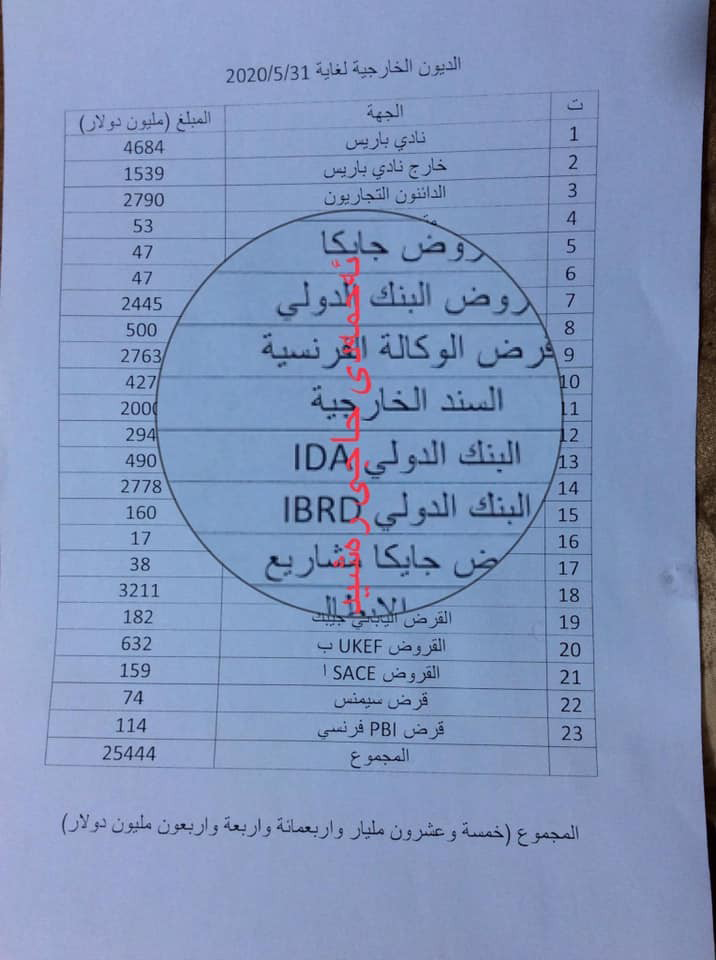 الديون الخارجية لغاية 2020/5/31
ت الجهة المبلغ (مليون دولار)
1 نادي باريس 4684
2 خارج نادي باريس 1539
3 الدائنون التجاريون 2790
4 53
5 47
6 47
7 2445
8 500
9 2763
10 427
11 2000
12 294
13 490
14 2778
15 160
16 17
17 38
18 3211
19 القرض الياباني جيبك 182
20 القروض UKEF ب 632
21 القروض SACE ا 159
22 قرض سيمنس 74
23 قرض PBI فرنسي 114
المجموع 25444
روض جايكا
روض البنك الدولي
قرض الوكالة الفرنسية
السند الخارجية
البنك الدولي IDA
البنك الدولي IBRD
ض جايكا مشاريع
ئەحمەدی حاجی ڕەشید
المجموع (خمسة وعشرون مليار واربعمائة واربعة واربعون مليون دولار)